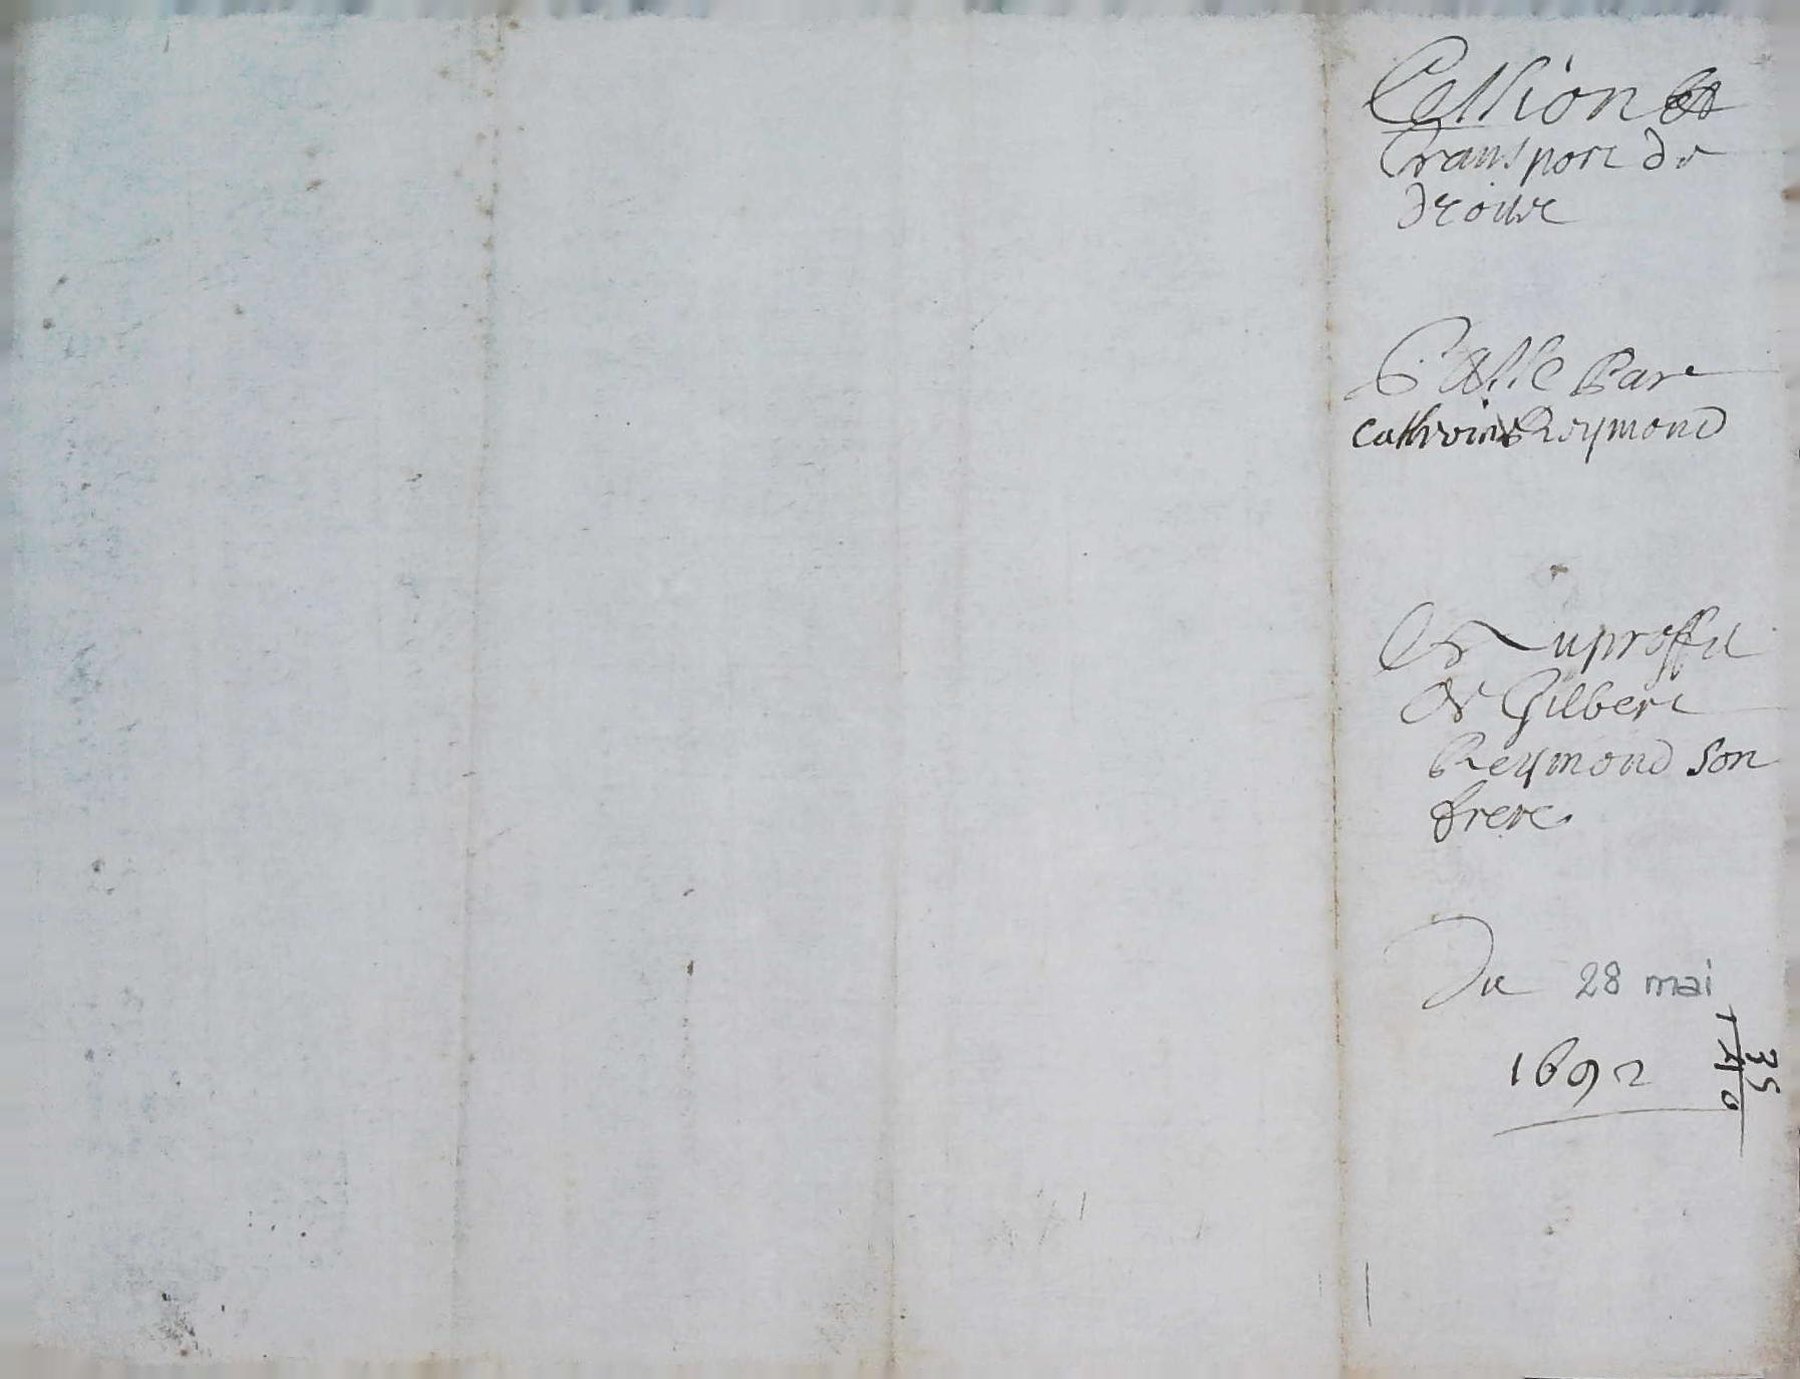 Cession et
transport de
droits
Passé Par
Catherine Reymond
Au proffit
de Gilbert
Reymond son
frere.
Du 28 mai
1692
35